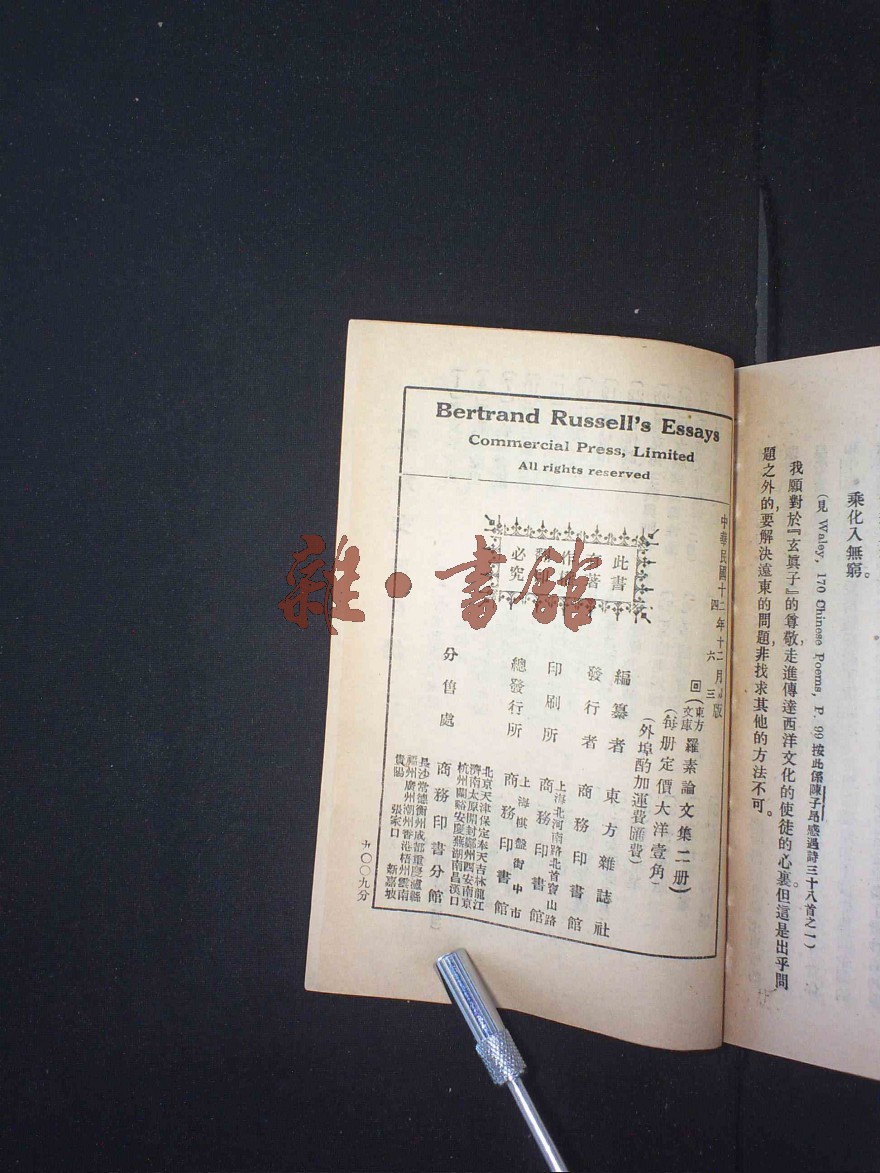 乘化入無窮。
(見 Waley, 170 Chinese Poems, P. 99 按此係陳子昂感遇詩三十八首之一)
我願對於『玄眞子』的尊敬走進傳達西洋文化的使徒的心裏但這是出乎問
題之外的,要解決遠東的問題,非找求其他的方法不可。
Bertrand Russell's Essays
Commercial Press, Limited
All rights reserved
中華民國十二年十二月
四 六 三版
東方文庫 羅素論文集二册)
(每册定價大洋壹角)
(外埠酌加運費匯費)
此書
有著
作權
翻印
必究
編纂者 東方雜誌社
發行者 商務印書館
印刷所 上海北河南路北首寶山路 商務印書館
總發行所 上海棋盤街中市 商務印書館
分售處 商務印書分館
北京天津保定奉天吉林龍江
濟南太原開封鄭州西安南京
杭州蘭谿安慶蕪湖南昌漢口
長沙常德衡州成都重慶瀘縣
福州廣州潮州香港梧州雲南
貴陽 張家口 新嘉坡
九〇〇九分
雜·書館